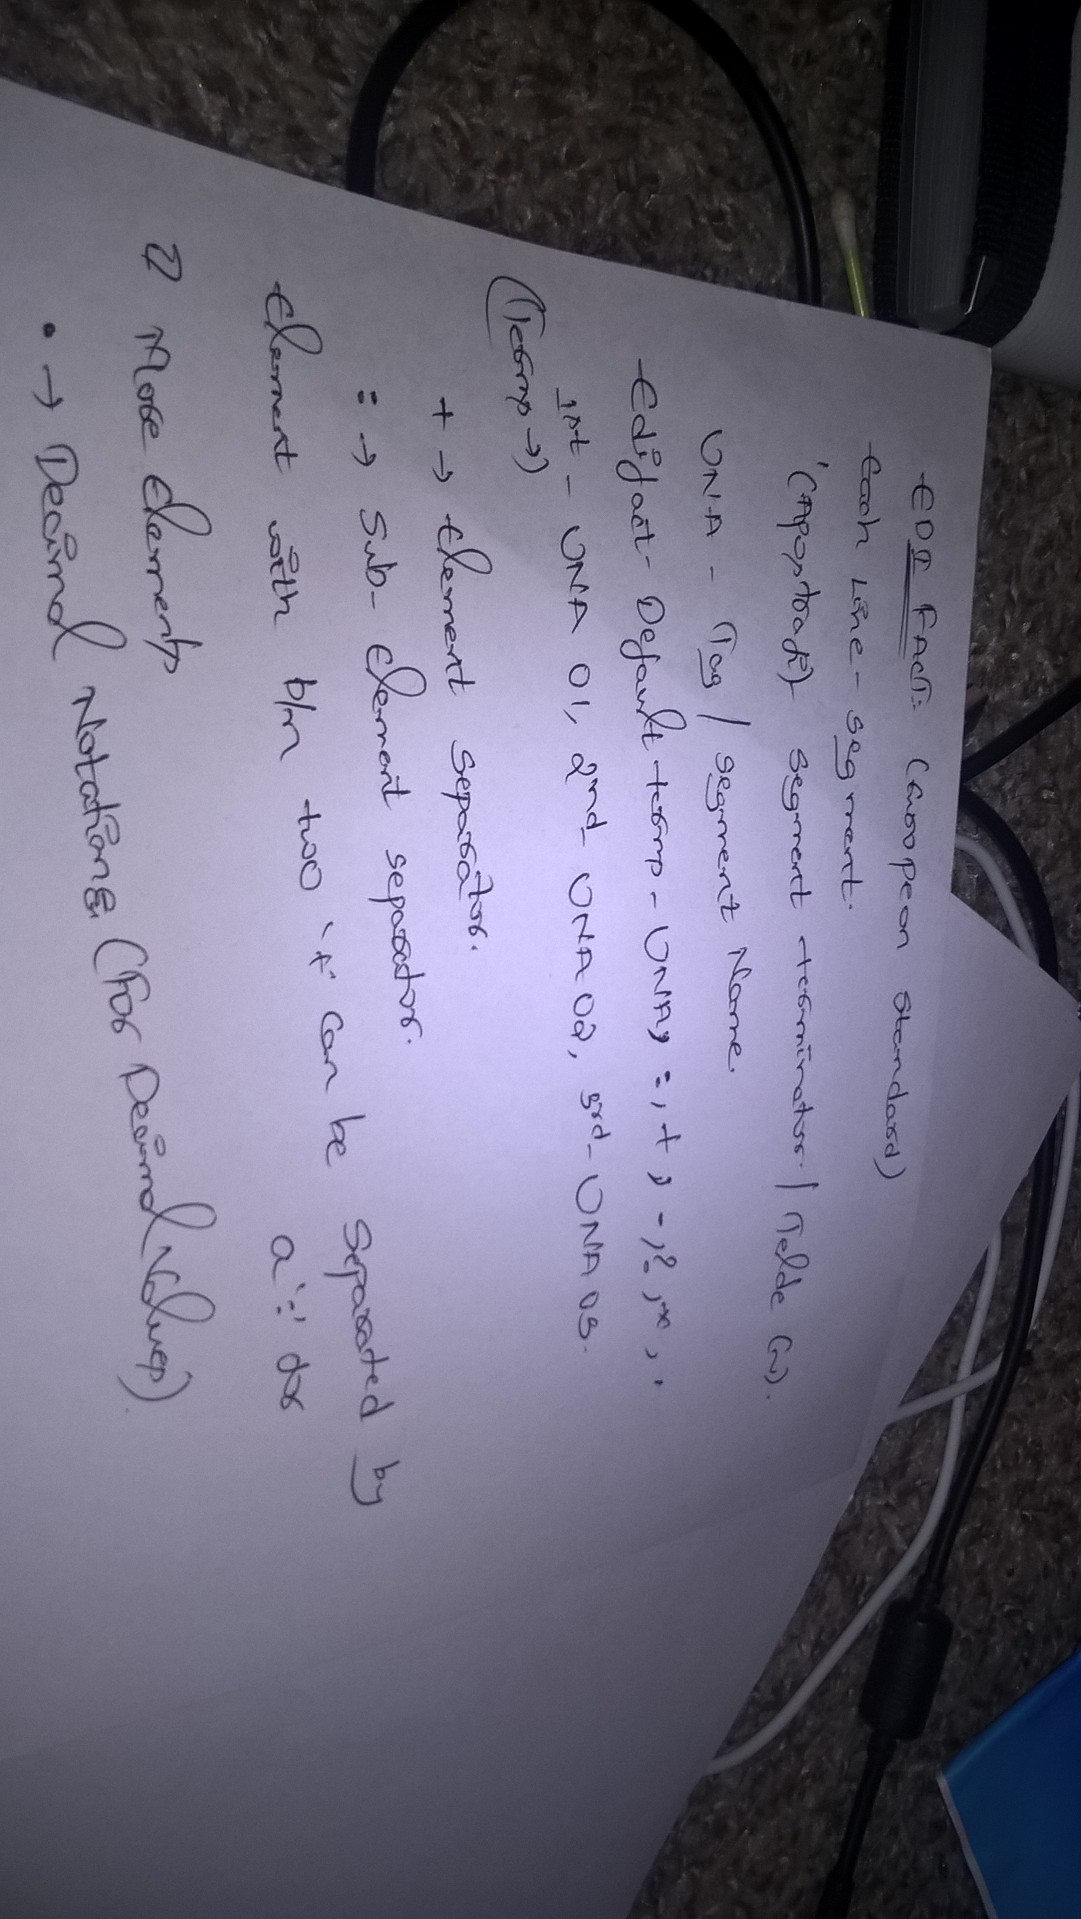 EDI FACT: (European standard)
Each Line - segment.
'(Apostrophi) segment terminator. / Telde (~).
UNA - Tag / segment Name.
Edifact - Default terms - UNA, :, +, -, ?, *, .
1st - UNA 01, 2nd UNA 02, 3rd - UNA 03.
(Terms →)
+ → Element separator.
: → Sub-Element separator.
Element with b/n two '+' can be separated by
a ':' for
2 More Elements
. → Decimal Notations, (For Decimal Values).